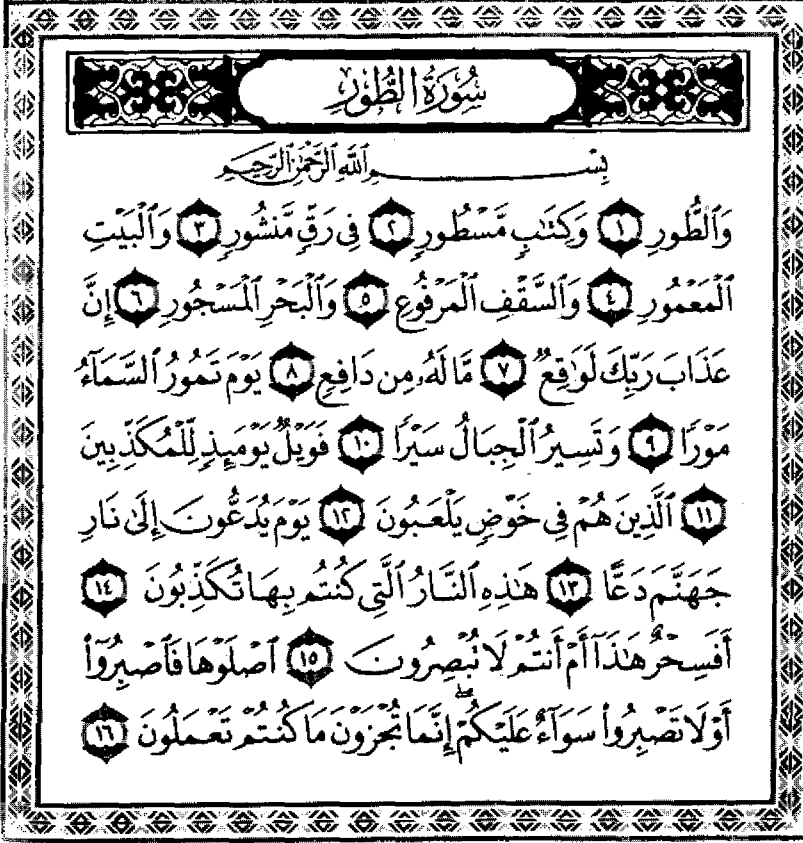 سُورَةُ الطُّورِ
بِسْمِ ٱللَّهِ ٱلرَّحْمَٰنِ ٱلرَّحِيمِ
وَٱلطُّورِ ١ وَكِتَٰبٍ مَّسْطُورٍ ٢ فِى رَقٍّ مَّنشُورٍ ٣ وَٱلْبَيْتِ
ٱلْمَعْمُورِ ٤ وَٱلسَّقْفِ ٱلْمَرْفُوعِ ٥ وَٱلْبَحْرِ ٱلْمَسْجُورِ ٦ إِنَّ
عَذَابَ رَبِّكَ لَوَٰقِعٌ ٧ مَّا لَهُۥ مِن دَافِعٍ ٨ يَوْمَ تَمُورُ ٱلسَّمَآءُ
مَوْرًا ٩ وَتَسِيرُ ٱلْجِبَالُ سَيْرًا ١٠ فَوَيْلٌ يَوْمَئِذٍ لِّلْمُكَذِّبِينَ
١١ ٱلَّذِينَ هُمْ فِى خَوْضٍ يَلْعَبُونَ ١٢ يَوْمَ يُدَعُّونَ إِلَىٰ نَارِ
جَهَنَّمَ دَعًّا ١٣ هَٰذِهِ ٱلنَّارُ ٱلَّتِى كُنتُم بِهَا تُكَذِّبُونَ ١٤
أَفَسِحْرٌ هَٰذَآ أَمْ أَنتُمْ لَا تُبْصِرُونَ ١٥ ٱصْلَوْهَا فَٱصْبِرُوٓا۟
أَوْ لَا تَصْبِرُوا۟ سَوَآءٌ عَلَيْكُمْ ۖ إِنَّمَا تُجْزَوْنَ مَا كُنتُمْ تَعْمَلُونَ ١٦